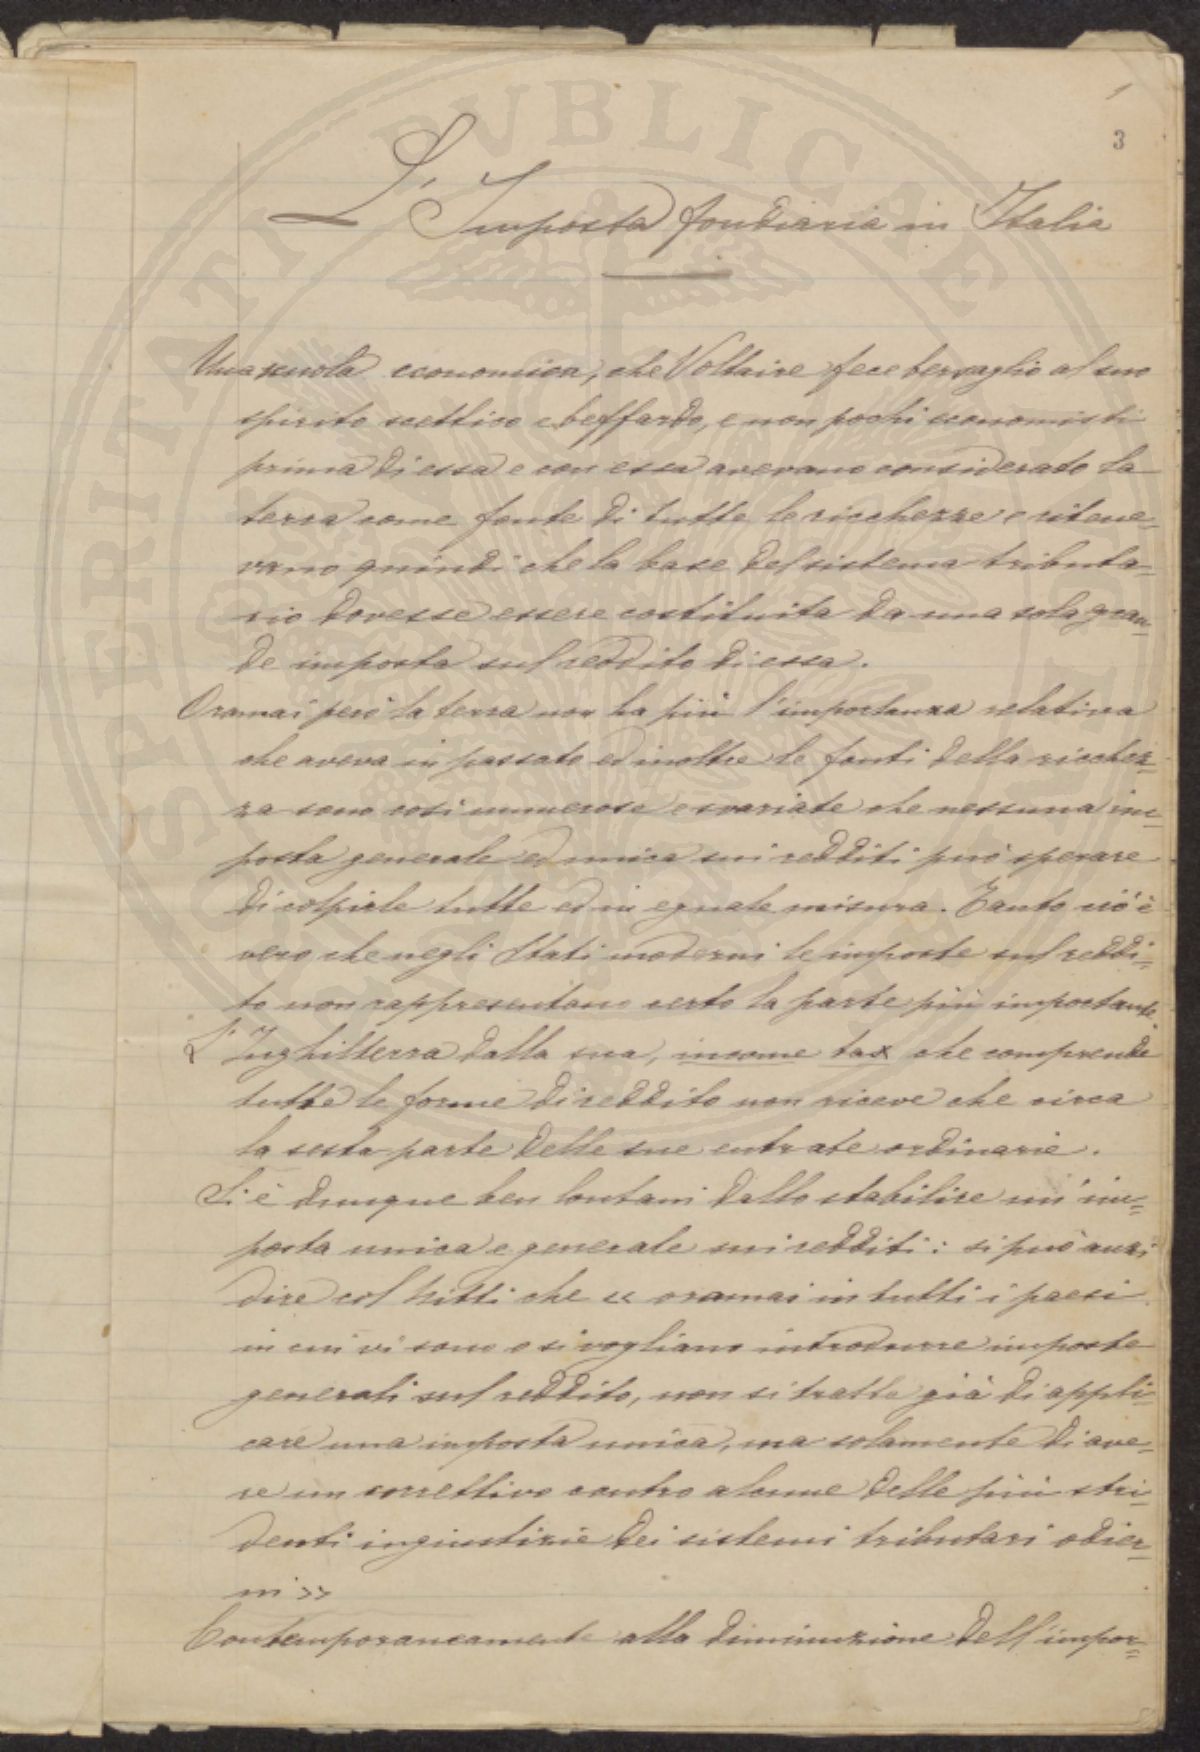 1
3
L'Imposta fondiaria in Italia
Una scuola economica, che Voltaire fece bersaglio al suo
spirito scettico e beffardo, e non pochi economisti
prima di essa e con essa avevano considerato la
terra come fonte di tutte le ricchezze e ritene=
vano quindi che la base del sistema tributa=
rio dovesse essere costituita da una sola gran=
de imposta sul reddito di essa.
Oramai però la terra non ha più l'importanza relativa
che aveva in passato ed inoltre le fonti della ricchez=
za sono così numerose e svariate che nessuna im=
posta generale ed unica sui redditi può sperare
di colpirle tutte ed in eguale misura. Tanto ciò è
vero che negli Stati moderni le imposte sul reddi=
to non rappresentano certo la parte più importante.
L'Inghilterra dalla sua, income tax che comprende
tutte le forme di reddito non riceve che circa
la sesta parte delle sue entrate ordinarie.
Si è dunque ben lontani dallo stabilire un'im=
posta unica e generale sui redditi: si può anzi
dire col Nitti che « oramai in tutti i paesi
in cui vi sono o si vogliano introdurre imposte
generali sul reddito, non si tratta già di appli=
care una imposta unica, ma solamente di ave=
re un correttivo contro alcune delle più stri=
denti ingiustizie dei sistemi tributari odier=
ni »
Contemporaneamente alla diminuzione dell'impor=
SPERITATI PUBLICAE